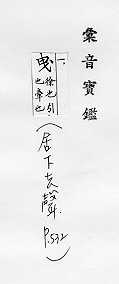 彙音寶鑑
一、
曳
徐也引
也牽也
(居下去聲.
P.532)